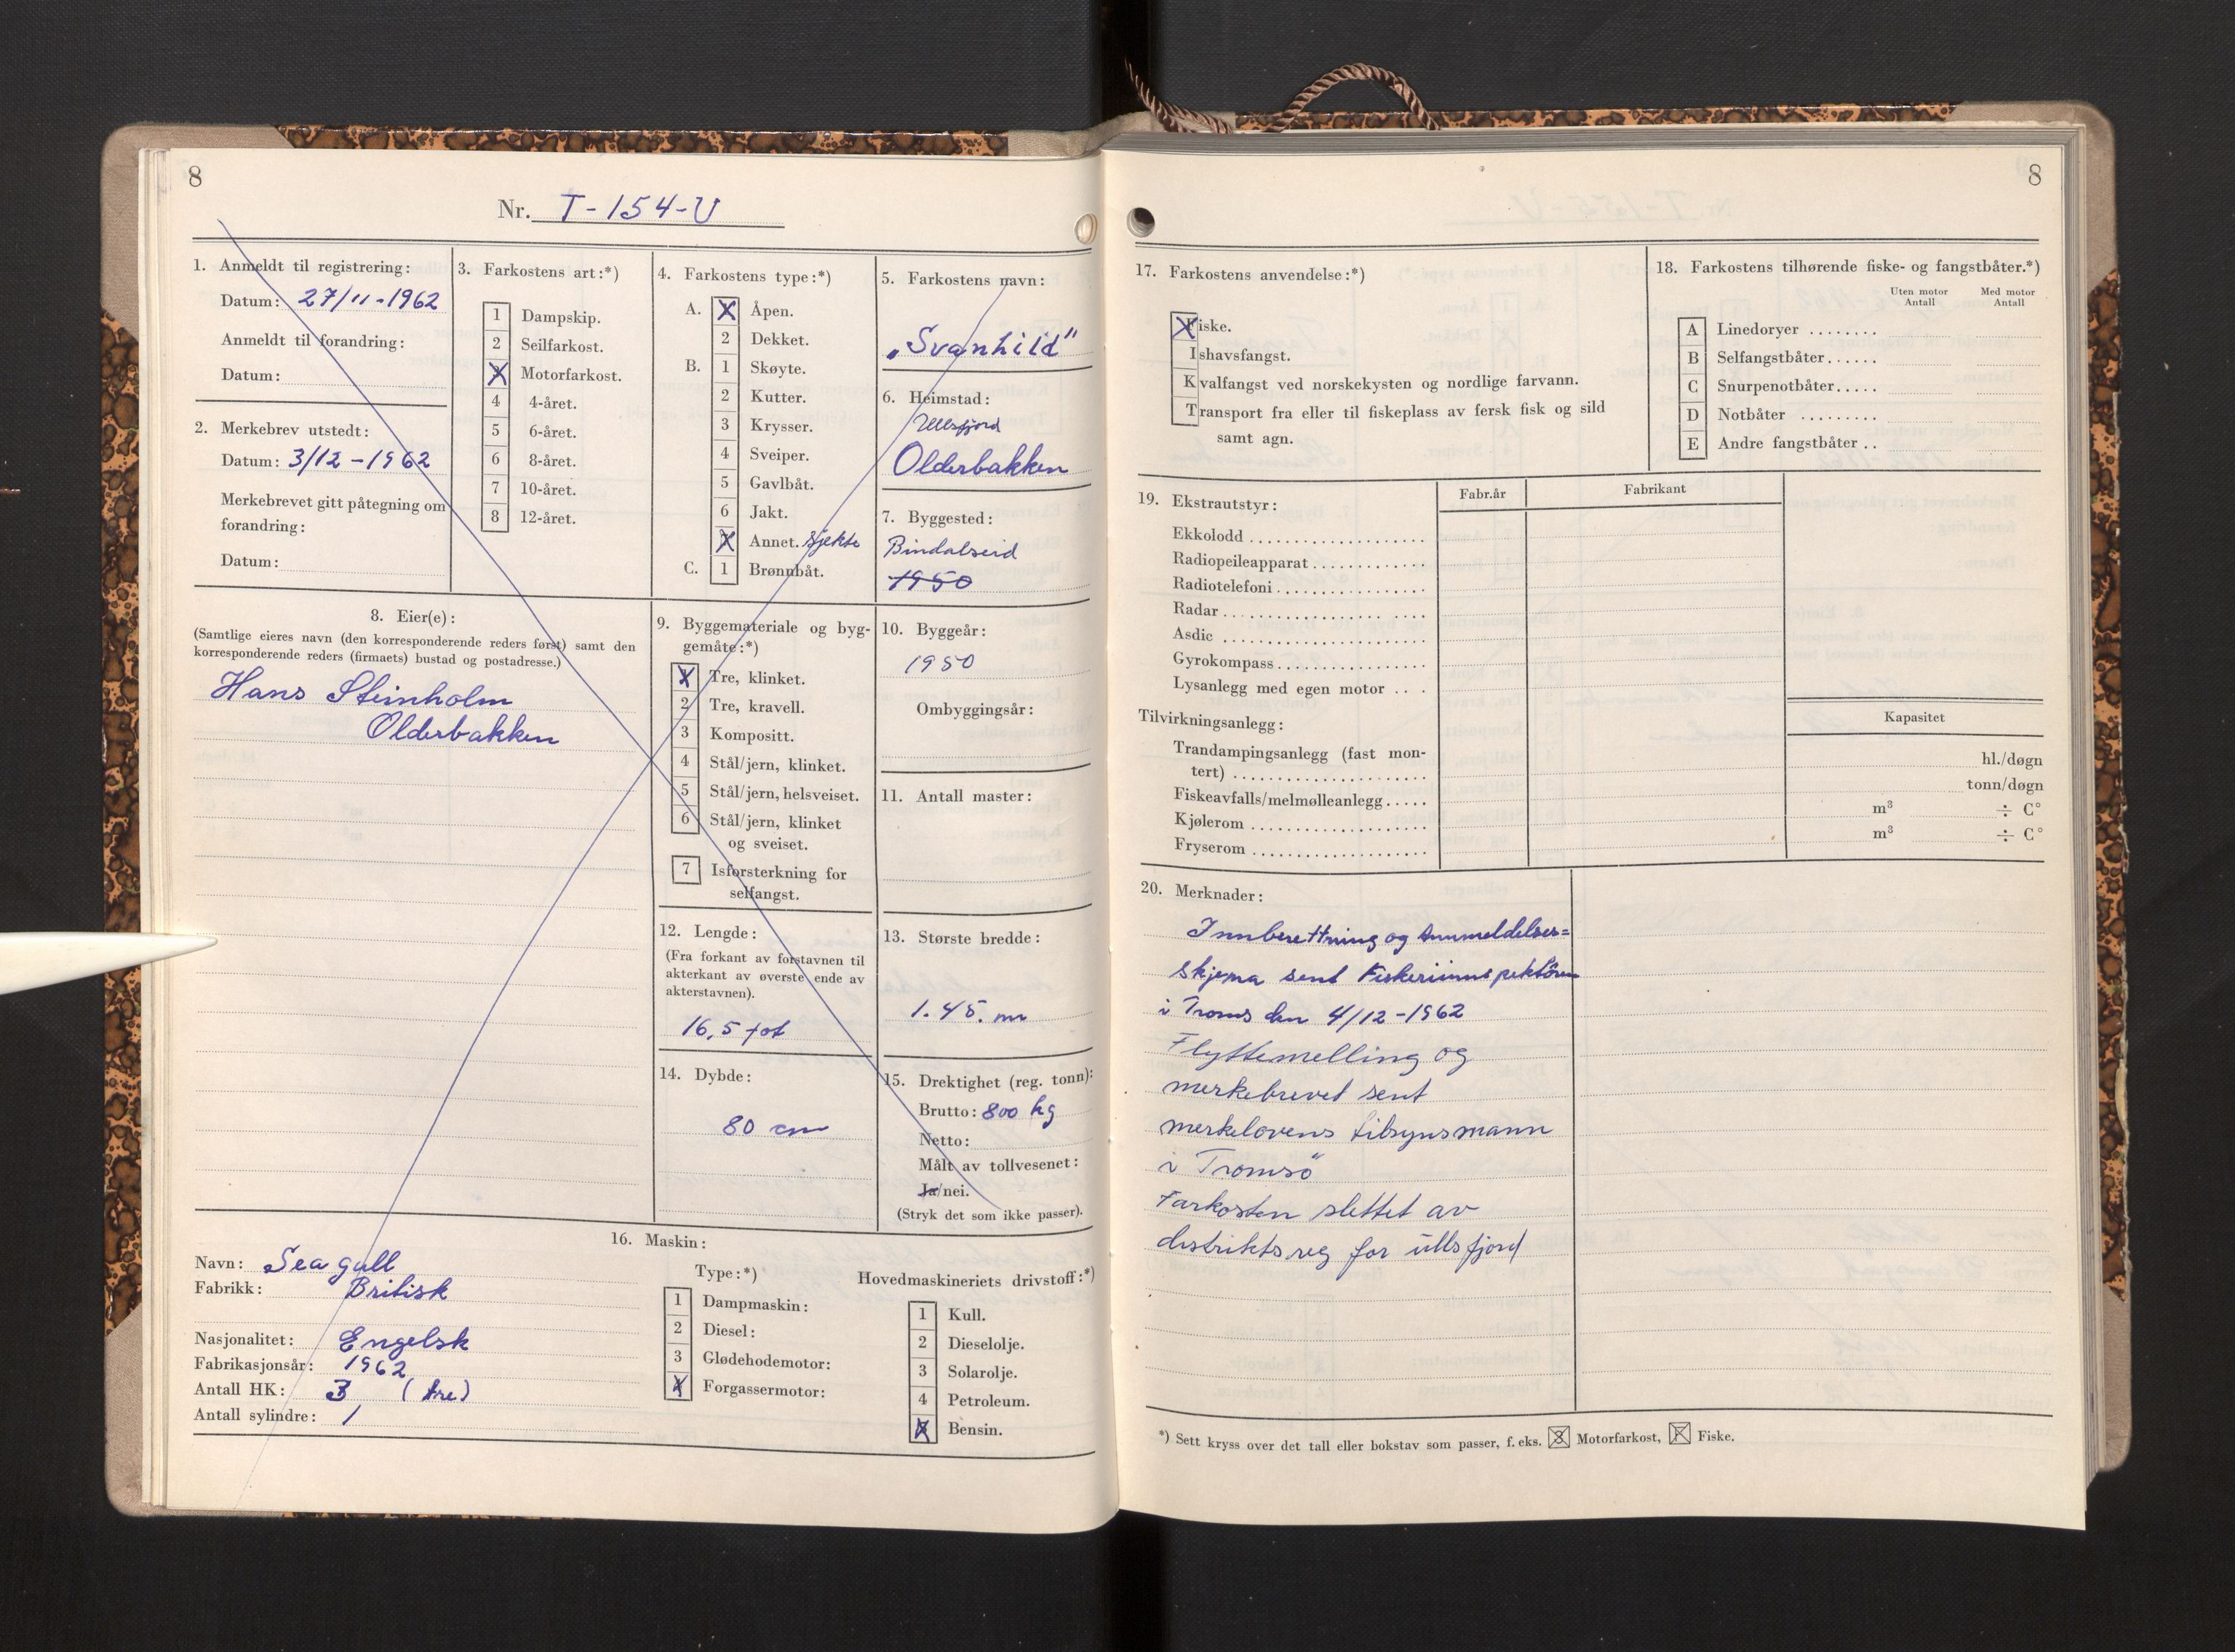 8
Nr. T-154-U
1. Anmeldt til registrering:
Datum: 27/11-1962
Anmeldt til forandring:
Datum:
2. Merkebrev utstedt:
Datum: 3/12-1962
Merkebrevet gitt påtegning om
forandring:
Datum:
3. Farkostens art:*)
1 Dampskip.
2 Seilfarkost.
X Motorfarkost.
4 4-året.
5 6-året.
6 8-året.
7 10-året.
8 12-året.
4. Farkostens type:*)
A. X Åpen.
2 Dekket.
B. 1 Skøyte.
2 Kutter.
3 Krysser.
4 Sveiper.
5 Gavlbåt.
6 Jakt.
X Annet. Sjekte
C. 1 Brønnbåt.
5. Farkostens navn:
„Svanhild"
6. Heimstad:
Ullsfjord
Olderbakken
7. Byggested:
Bindalseid
1950
8. Eier(e):
(Samtlige eieres navn (den korresponderende reders først) samt den
korresponderende reders (firmaets) bustad og postadresse.)
Hans Steinholm
Olderbakken
9. Byggemateriale og byg-
gemåte:*)
X Tre, klinket.
2 Tre, kravell.
3 Kompositt.
4 Stål/jern, klinket.
5 Stål/jern, helsveiset.
6 Stål/jern, klinket
og sveiset.
7 Isforsterkning for
selfangst.
10. Byggeår:
1950
Ombyggingsår:
11. Antall master:
12. Lengde:
(Fra forkant av forstavnen til
akterkant av øverste ende av
akterstavnen).
16,5 fot
13. Største bredde:
1.45. m
14. Dybde:
80 cm
15. Drektighet (reg. tonn):
Brutto: 800 kg
Netto:
Målt av tollvesenet:
Ja/nei.
(Stryk det som ikke passer).
16. Maskin:
Navn: Sea gull
Fabrikk: Britisk
Nasjonalitet: Engelsk
Fabrikasjonsår: 1962
Antall HK: 3 (tre)
Antall sylindre: 1
Type:*)
1 Dampmaskin:
2 Diesel:
3 Glødehodemotor:
X Forgassermotor:
Hovedmaskineriets drivstoff:*)
1 Kull.
2 Dieselolje.
3 Solarolje.
4 Petroleum.
X Bensin.
8
17. Farkostens anvendelse:*)
Fiske.
Ishavsfangst.
Kvalfangst ved norskekysten og nordlige farvann.
Transport fra eller til fiskeplass av fersk fisk og sild
samt agn.
18. Farkostens tilhørende fiske- og fangstbåter.*)
Uten motor Med motor
Antall Antall
A Linedoryer ........
B Selfangstbåter......
C Snurpenotbåter.....
D Notbåter .........
E Andre fangstbåter ..
19. Ekstrautstyr:
Fabr.år Fabrikant
Ekkolodd
Radiopeileapparat
Radiotelefoni
Radar
Asdic
Gyrokompass
Lysanlegg med egen motor ...
Tilvirkningsanlegg:
Kapasitet
Trandampingsanlegg (fast mon-
tert) hl./døgn
Fiskeavfalls/melmølleanlegg..... tonn/døgn
Kjølerom m³ ÷ C°
Fryserom m³ ÷ C°
20. Merknader:
Innberettning og Anmeldelses=
skjema sent Fiskeriinspektören
i Troms den 4/12-1962
Flyttemelling og
merkebrevet sent
merkelovens tilsynsmann
i Tromsö
Farkosten slettet av
distriktsreg for ullsfjord
*) Sett kryss over det tall eller bokstav som passer, f. eks. 3 Motorfarkost, F Fiske.